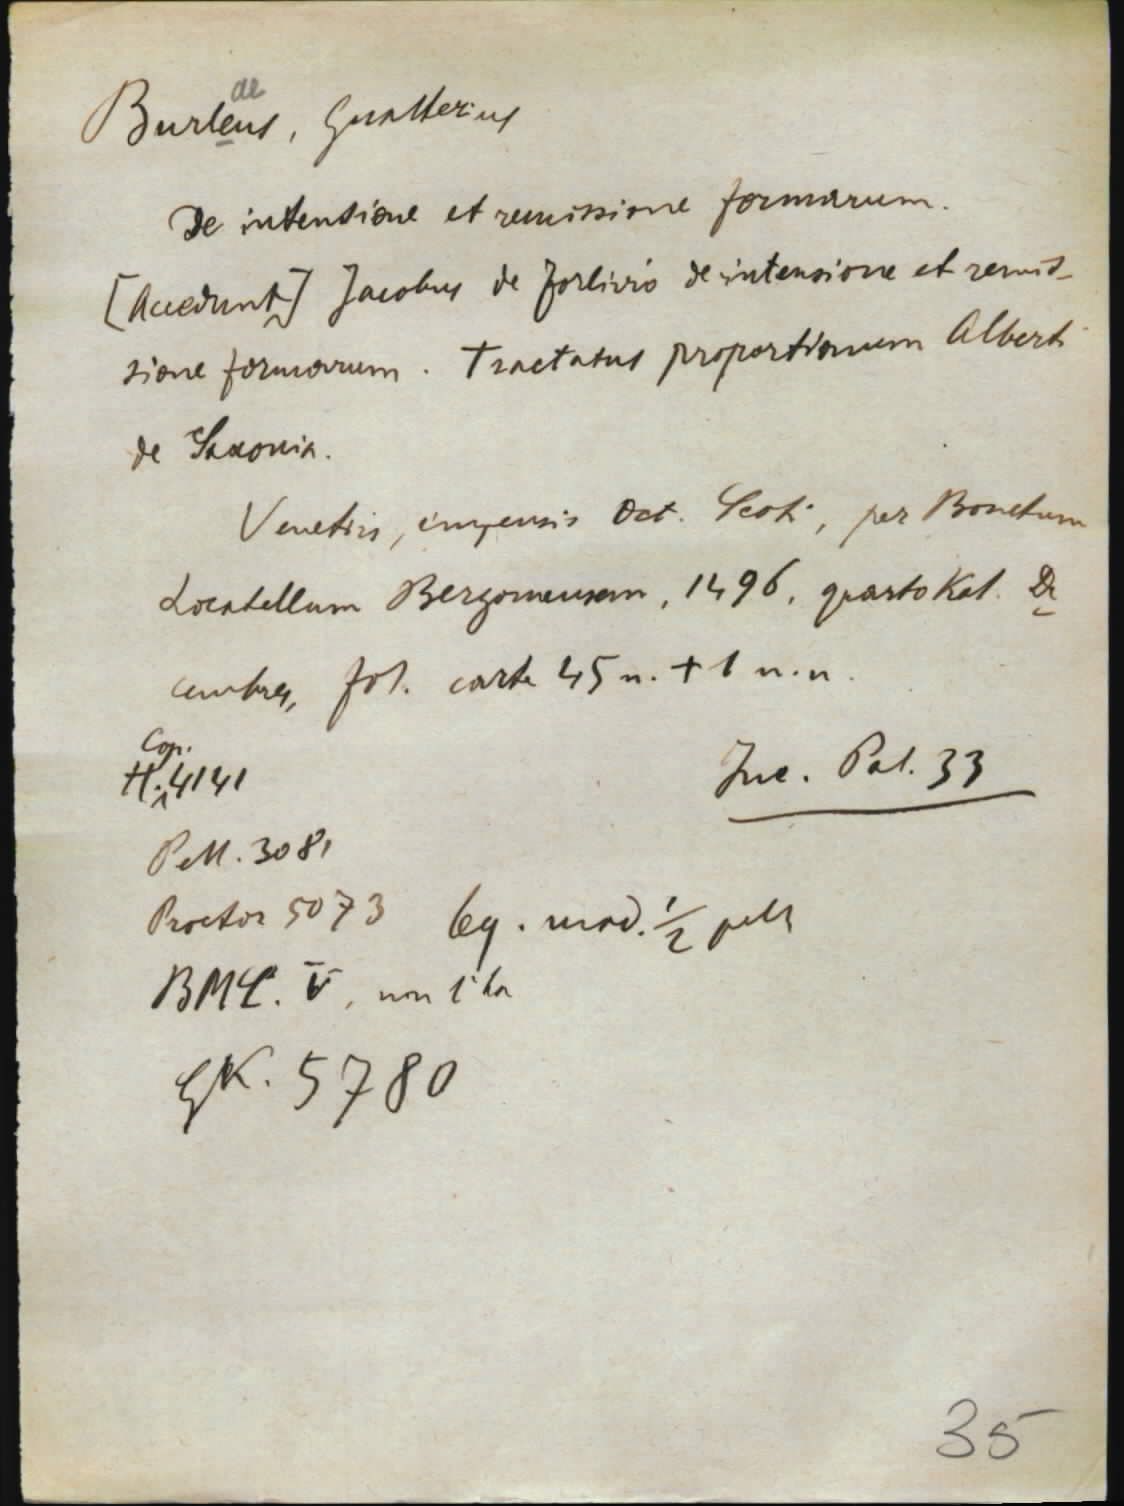 de
Burleus, Gualterius
De intensione et remissione formarum.
[Accedunt] Jacobus de Forlivio de intensione et remis-
sione formarum. Tractatus proportionum Alberti
de Saxonia.
Venetiis, impensis Oct. Scoti, per Bonetum
Locatellum Bergomensem, 1496, quarto Kal. De
cembres, fol. carte 45 n. + 1 n.n.
Cop.
H. 4141
Inc. Pal. 33
Pell. 3081
Proctor 5073
leg. mod. 1/2 pelle
BMC. V, non l'ha
GK. 5780
35